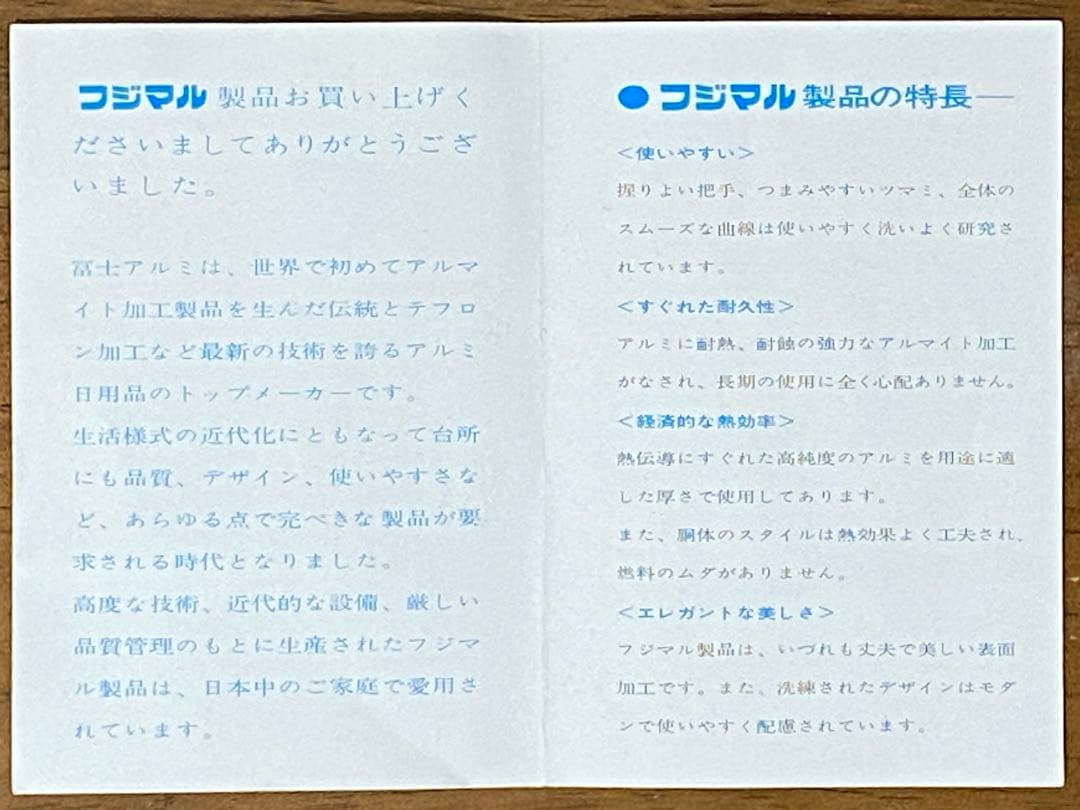 フジマル 製品お買い上げく
ださいましてありがとうござ
いました。
冨士アルミは、世界で初めてアルマ
イト加工製品を生んだ伝統とテフロ
ン加工など最新の技術を誇るアルミ
日用品のトップメーカーです。
生活様式の近代化にともなって台所
にも品質、デザイン、使いやすさな
ど、あらゆる点で完ぺきな製品が要
求される時代となりました。
高度な技術、近代的な設備、厳しい
品質管理のもとに生産されたフジマ
ル製品は、日本中のご家庭で愛用さ
れています。
●フジマル製品の特長―
＜使いやすい＞
握りよい把手、つまみやすいツマミ、全体の
スムーズな曲線は使いやすく洗いよく研究さ
れています。
＜すぐれた耐久性＞
アルミに耐熱、耐蝕の強力なアルマイト加工
がなされ、長期の使用に全く心配ありません。
＜経済的な熱効率＞
熱伝導にすぐれた高純度のアルミを用途に適
した厚さで使用してあります。
また、胴体のスタイルは熱効果よく工夫され、
燃料のムダがありません。
＜エレガントな美しさ＞
フジマル製品は、いづれも丈夫で美しい表面
加工です。また、洗練されたデザインはモダ
ンで使いやすく配慮されています。